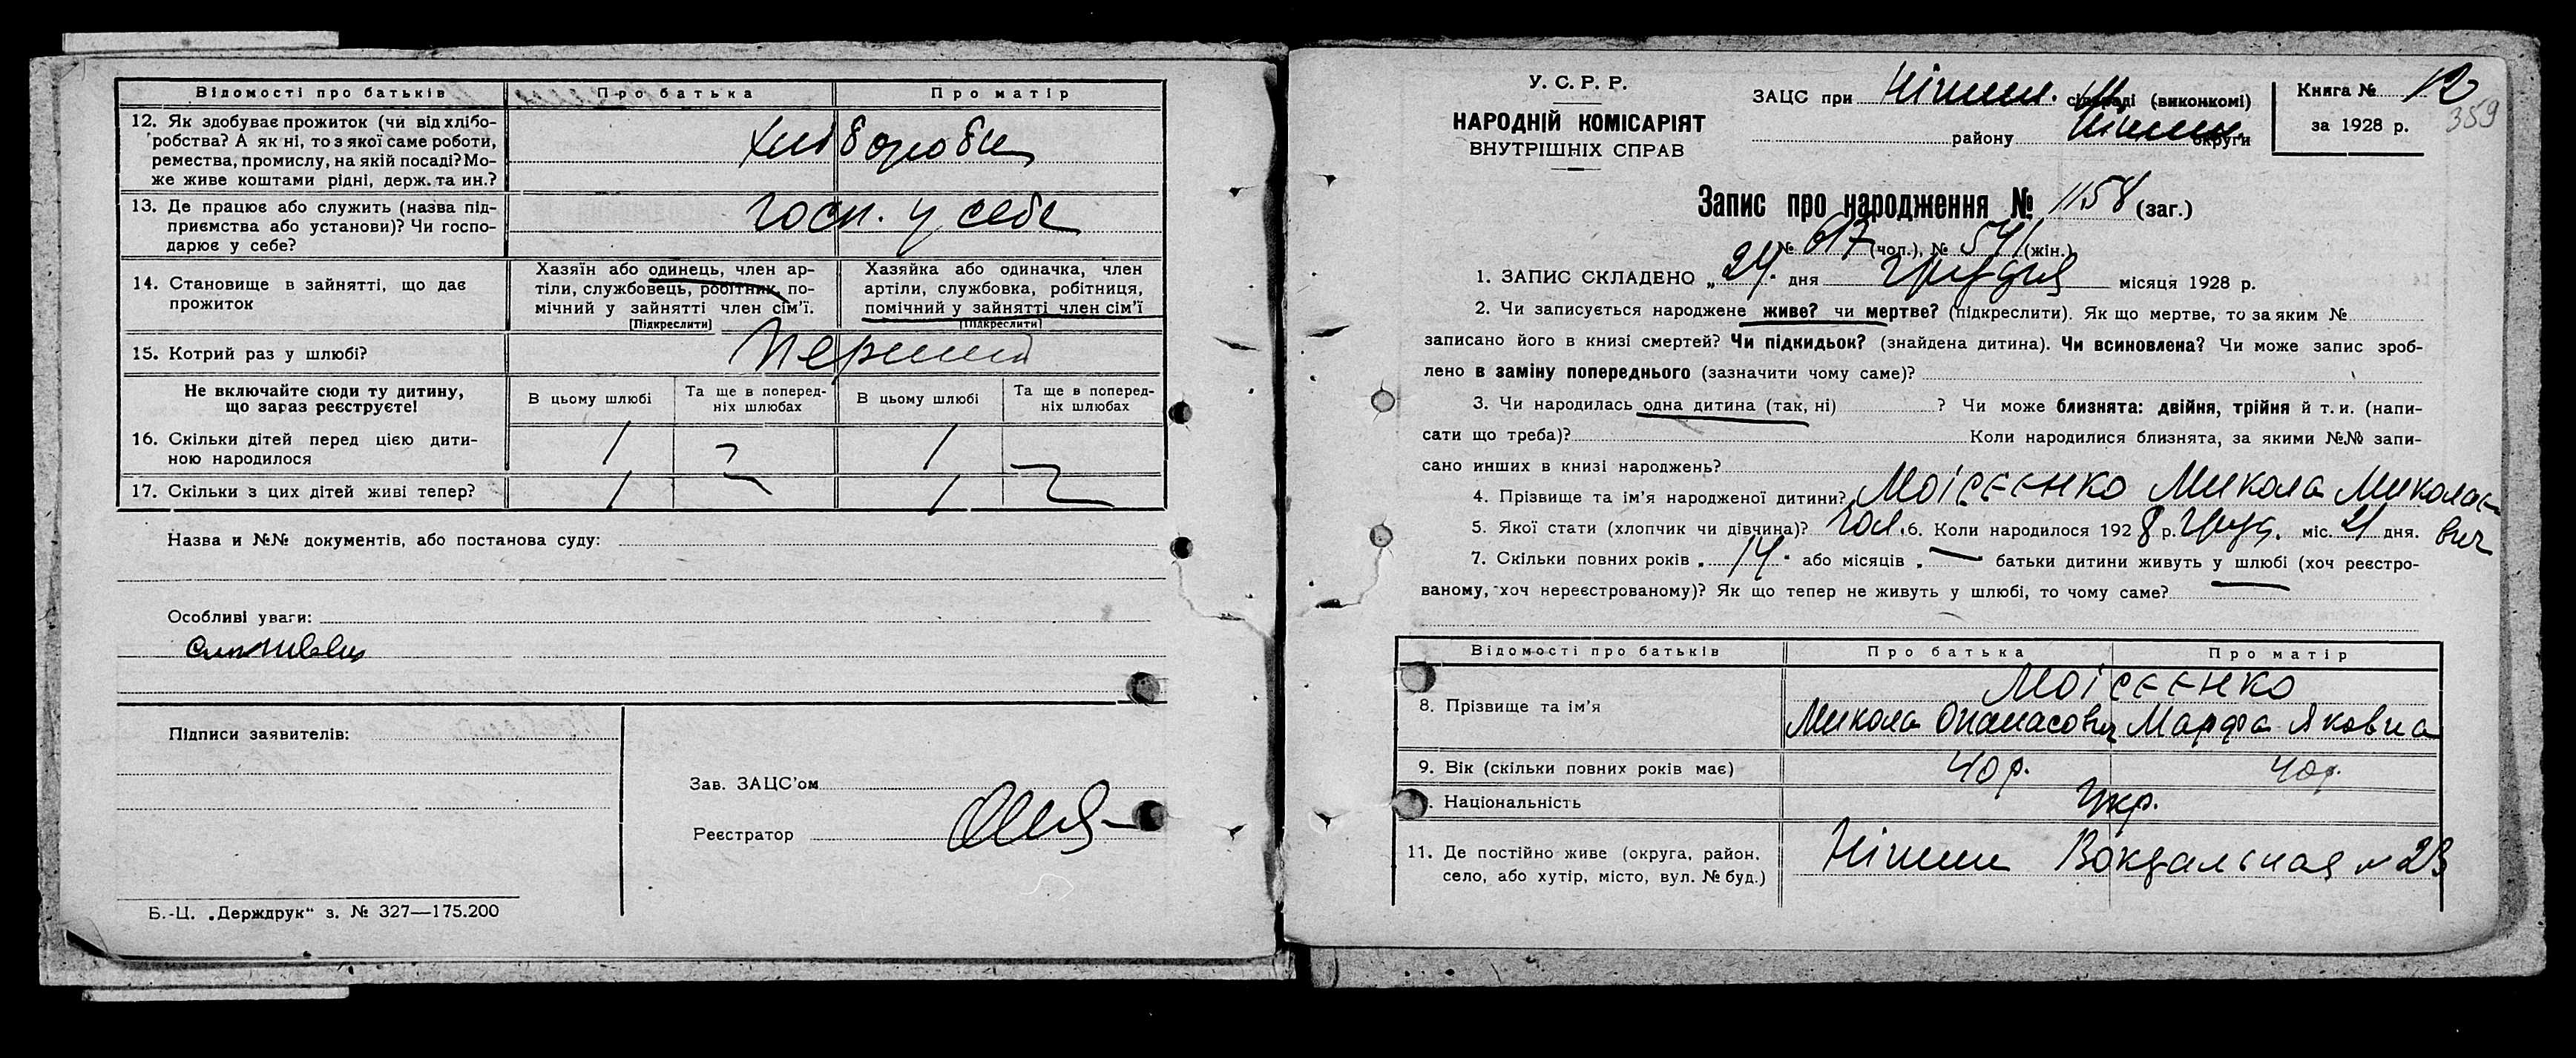 Відомості про батьків Про батька Про матір
12. Як здобуває прожиток (чи від хлібо-
робства? А як ні, то з якої саме роботи,
ремества, промислу, на якій посаді? Мо-
же живе коштами рідні, держ. та ин.?
хлібороби
13. Де працює або служить (назва під-
приємства або установи)? Чи госпо-
дарює у себе?
госп. у себе
14. Становище в зайнятті, що дає
прожиток
Хазяїн або одинець, член ар-
тіли, службовець, робітник, по-
мічний у зайнятті член сім'ї.
[Підкреслити]
Хазяйка або одиначка, член
артіли, службовка, робітниця,
помічний у зайнятті член сім'ї
[Підкреслити]
15. Котрий раз у шлюбі? Перший
Не включайте сюди ту дитину,
що зараз реєструєте!
В цьому шлюбі
Та ще в поперед-
ніх шлюбах
В цьому шлюбі
Та ще в поперед-
ніх шлюбах
16. Скільки дітей перед цією дити-
ною народилося
1 1
17. Скільки з цих дітей живі тепер? 1 1
Назва и №№ документів, або постанова суду:
Особливі уваги:
Підписи заявителів:
Зав. ЗАЦС'ом
Реєстратор
Б.-Ц. „Держдрук“ з. № 327—175.200
У. С. Р. Р.
НАРОДНІЙ КОМІСАРІЯТ
ВНУТРІШНІХ СПРАВ
ЗАЦС при Ніжин. сільраді (виконкомі)
району Ніжин. округи
Книга № 12
за 1928 р.
359
Запис про народження № 1158 (заг.)
№ 617 (чол.), № 541 (жін.)
1. ЗАПИС СКЛАДЕНО „24“ дня Грудня місяця 1928 р.
2. Чи записується народжене живе? чи мертве? (підкреслити). Як що мертве, то за яким №
записано його в книзі смертей? Чи підкидьок? (знайдена дитина). Чи всиновлена? Чи може запис зроб-
лено в заміну попереднього (зазначити чому саме)?
3. Чи народилась одна дитина (так, ні) ? Чи може близнята: двійня, трійня й т. и. (напи-
сати що треба)? Коли народилися близнята, за якими №№ запи-
сано инших в книзі народжень?
4. Прізвище та ім'я народженої дитини? Моісєєнко Микола Миколає-
вич
5. Якої стати (хлопчик чи дівчина)? чол. 6. Коли народилося 1928 р. Груд. міс. 21 дня.
7. Скільки повних років „14“ або місяців „ — батьки дитини живуть у шлюбі (хоч реєстро-
ваному, хоч нереєстрованому)? Як що тепер не живуть у шлюбі, то чому саме?
Відомості про батьків Про батька Про матір
8. Прізвище та ім'я
Моісєєнко
Микола Опанасович Марфа Яковна
9. Вік (скільки повних років має) 40 р. 40 р.
Національність Укр.
11. Де постійно живе (округа, район,
село, або хутір, місто, вул. № буд.)
Ніжин Вокзальная № 23